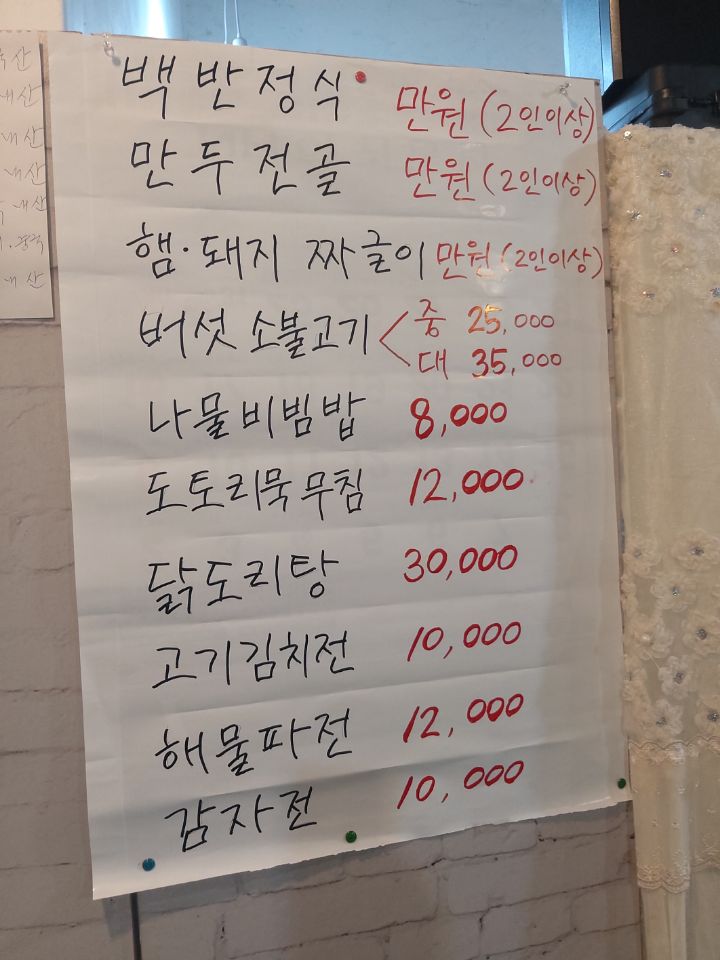 백반정식 만원 (2인이상)
만두전골 만원 (2인이상)
햄·돼지 짜글이 만원 (2인이상)
버섯 소불고기 중 25,000
대 35,000
나물비빔밥 8,000
도토리묵무침 12,000
닭도리탕 30,000
고기김치전 10,000
해물파전 12,000
감자전 10,000